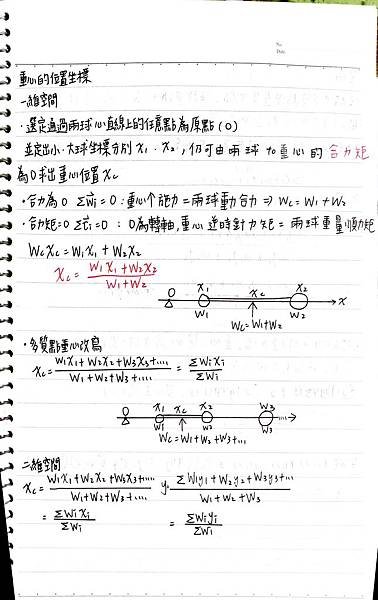 重心的位置坐標
一維空間
·選定通過兩球心直線上的任意點為原點(O)
並定出小.大球坐標分別 x1、x2,仍可由兩球 to 重心的合力矩
為0求出重心位置 Xc
·合力為0 Σw⃗i=0:重心個施力=兩球重力合力 ⇒ Wc=W1+W2
·合力矩=0 Στ⃗i=0 : O為轉軸,重心逆時針力矩=兩球重量順力矩
WcXc=W1X1+W2X2
Xc=(W1X1+W2X2)/(W1+W2)
O X1 Xc X2 x
W1 W2
Wc=W1+W2
·多質點重心改寫
Xc=(W1X1+W2X2+W3X3+....)/(W1+W2+W3+....) = ΣWiXi/ΣWi
O X1 Xc X2 W3 ...
W1 W2 W3
Wc=W1+W2+W3+...
二維空間
Xc=(W1X1+W2X2+W3X3+....)/(W1+W2+W3+....) y=(ΣW1y1+W2y2+W3y3+...)/(W1+W2+W3)
=ΣWiXi/ΣWi =ΣWiyi/ΣWi